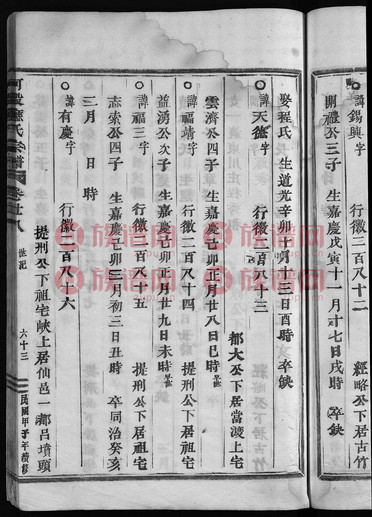 諱錫興字 行徽二百八十二 經略公下居古竹
開禮公三子 生嘉慶戊寅十一月廿七日戌時 卒缺
娶程氏 生道光辛卯十月十三日酉時 卒缺
諱天德字 行徽二百八十三
雲濟公四子 生嘉慶己卯正月廿八日巳時 都大公下居當渡上宅
諱福靖字 行徽二百八十四 提刑公下居祖宅
益湧公次子 生嘉慶己卯正月廿九日未時
諱福三字 行徽二百八十五 提刑公下居祖宅
志素公四子 生嘉慶己卯三月初三日丑時 卒同治癸亥
三月 日 時
諱有慶字 行徽二百八十六
提刑公下祖宅峽上居仙邑一都呂墳頭
宗譜 卷廿八 世記 六十三 民國甲子年續修